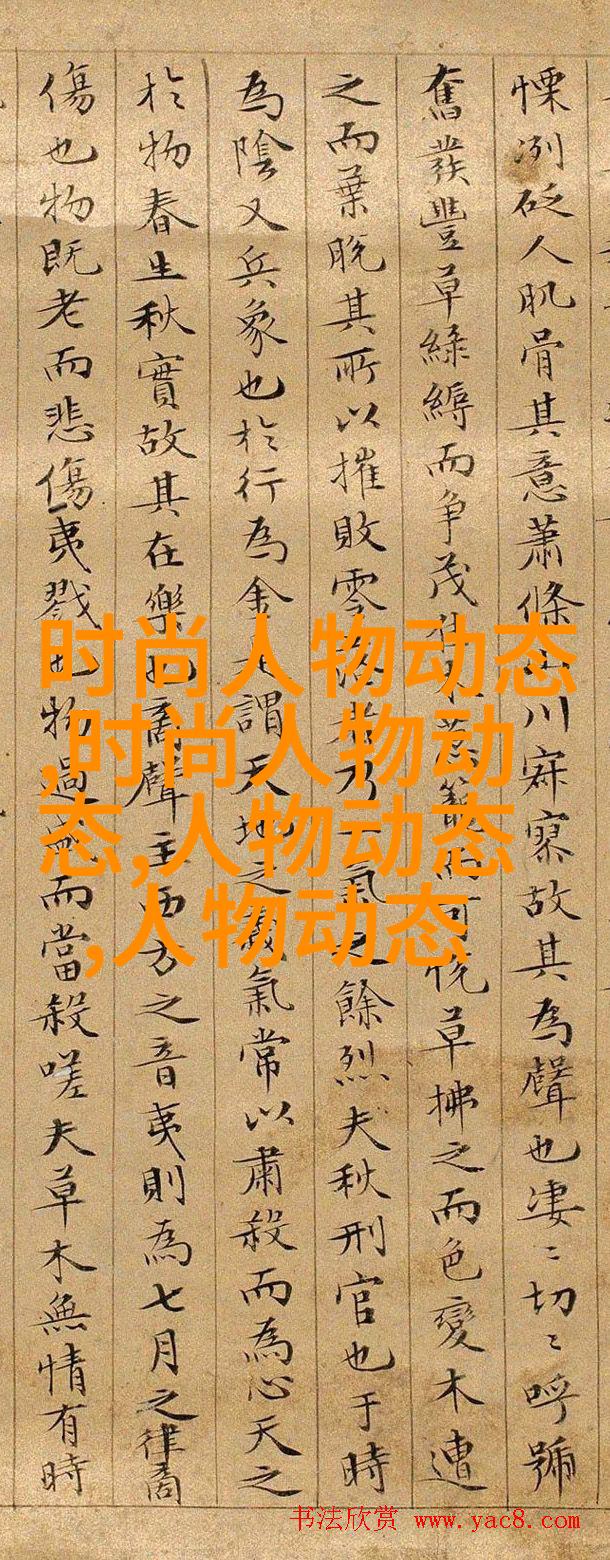 慄冽砭人肌骨其意蕭條山川寂寥故其為聲也凄〻切〻呼號
奮發豐草綠縟而争茂佳木葱籠而可悅草拂之而色變木遭
之而葉脫其所以摧敗零落者乃一氣之餘烈夫秋刑官也于時
為陰又兵象也於行為金是謂天地之義氣常以肅殺而為心天之
於物春生秋實故其在樂也商聲主西方之音夷則為七月之律商
傷也物既老而悲傷夷戮也物過盛而當殺嗟夫草木無情有時
时尚人物动态
,时尚人物动
态,人物动态
,人物动态
书法欣赏 www.yac8.com